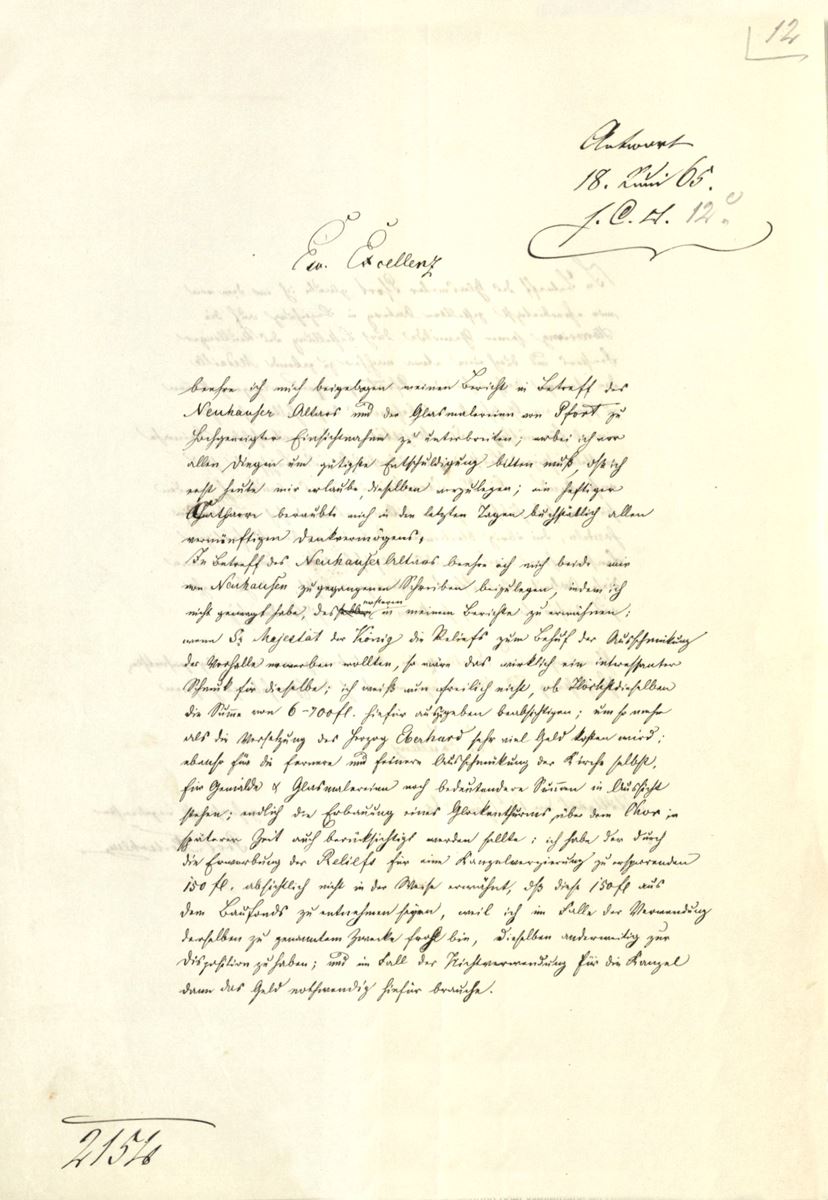 12
Antwort
18. Juni 65.
s. C. A. 12 c.
Ew. Excellenz
beehre ich mich beigelegen meinen Bericht in Betreff des
Neuhauser Altars und der Glasmalereien von Pfort zu
Hochgeneigter Einsichtnahme zu unterbreiten; wobei ich vor
allen Dingen um gütigste Entschuldigung bitten muß, dß ich
erst heute mir erlaube, dieselben vorzulegen; ein heftiger
Catharre beraubte mich in den letzten Tagen buchstäblich allen
vernünftigen Denkvermögens.
In Betreff des Neuhauser Altars beehre ich mich beide mir
von Neuhausen zugegangenen Schreiben beizulegen, indem ich
nicht gewagt habe, des ersteren in meinem Berichte zu erwähnen;
wenn Se Majestät der König die Reliefs zum Behuf der Ausschmükung
der Vorhalle erwerben wollten, so wäre das wirklich ein interessanter
Schmuk für dieselbe; ich weiß nun freilich nicht, ob Höchstdieselben
die Summe von 6-700 fl. hiefür auszugeben beabsichtigen; um so mehr
als die Versetzung des Herzog Eberhard sehr viel Geld kosten wird;
ebenso für die fernere und feinere Ausschmükung der Kirche selbst,
für Gemälde & Glasmalereien noch bedeutendere Summen in Aussicht
stehen; endlich die Erbauung eines Glockenthurms über dem Chor in
späterer Zeit auch berücksichtigt werden sollte; ich habe der durch
die Erwerbung der Reliefs für eine Kanzelverzierung zu ersparenden
150 fl. absichtlich nicht in der Weise erwähnt, dß diese 150 fl aus
dem Baufonds zu entnehmen seyen, weil ich im Falle der Verwendung
derselben zu genanntem Zwecke froh bin, dieselben anderweitig zur
Disposition zu haben; und im Fall der Nichtverwendung für die Kanzel
dann das Geld nothwendig hiefür brauche.